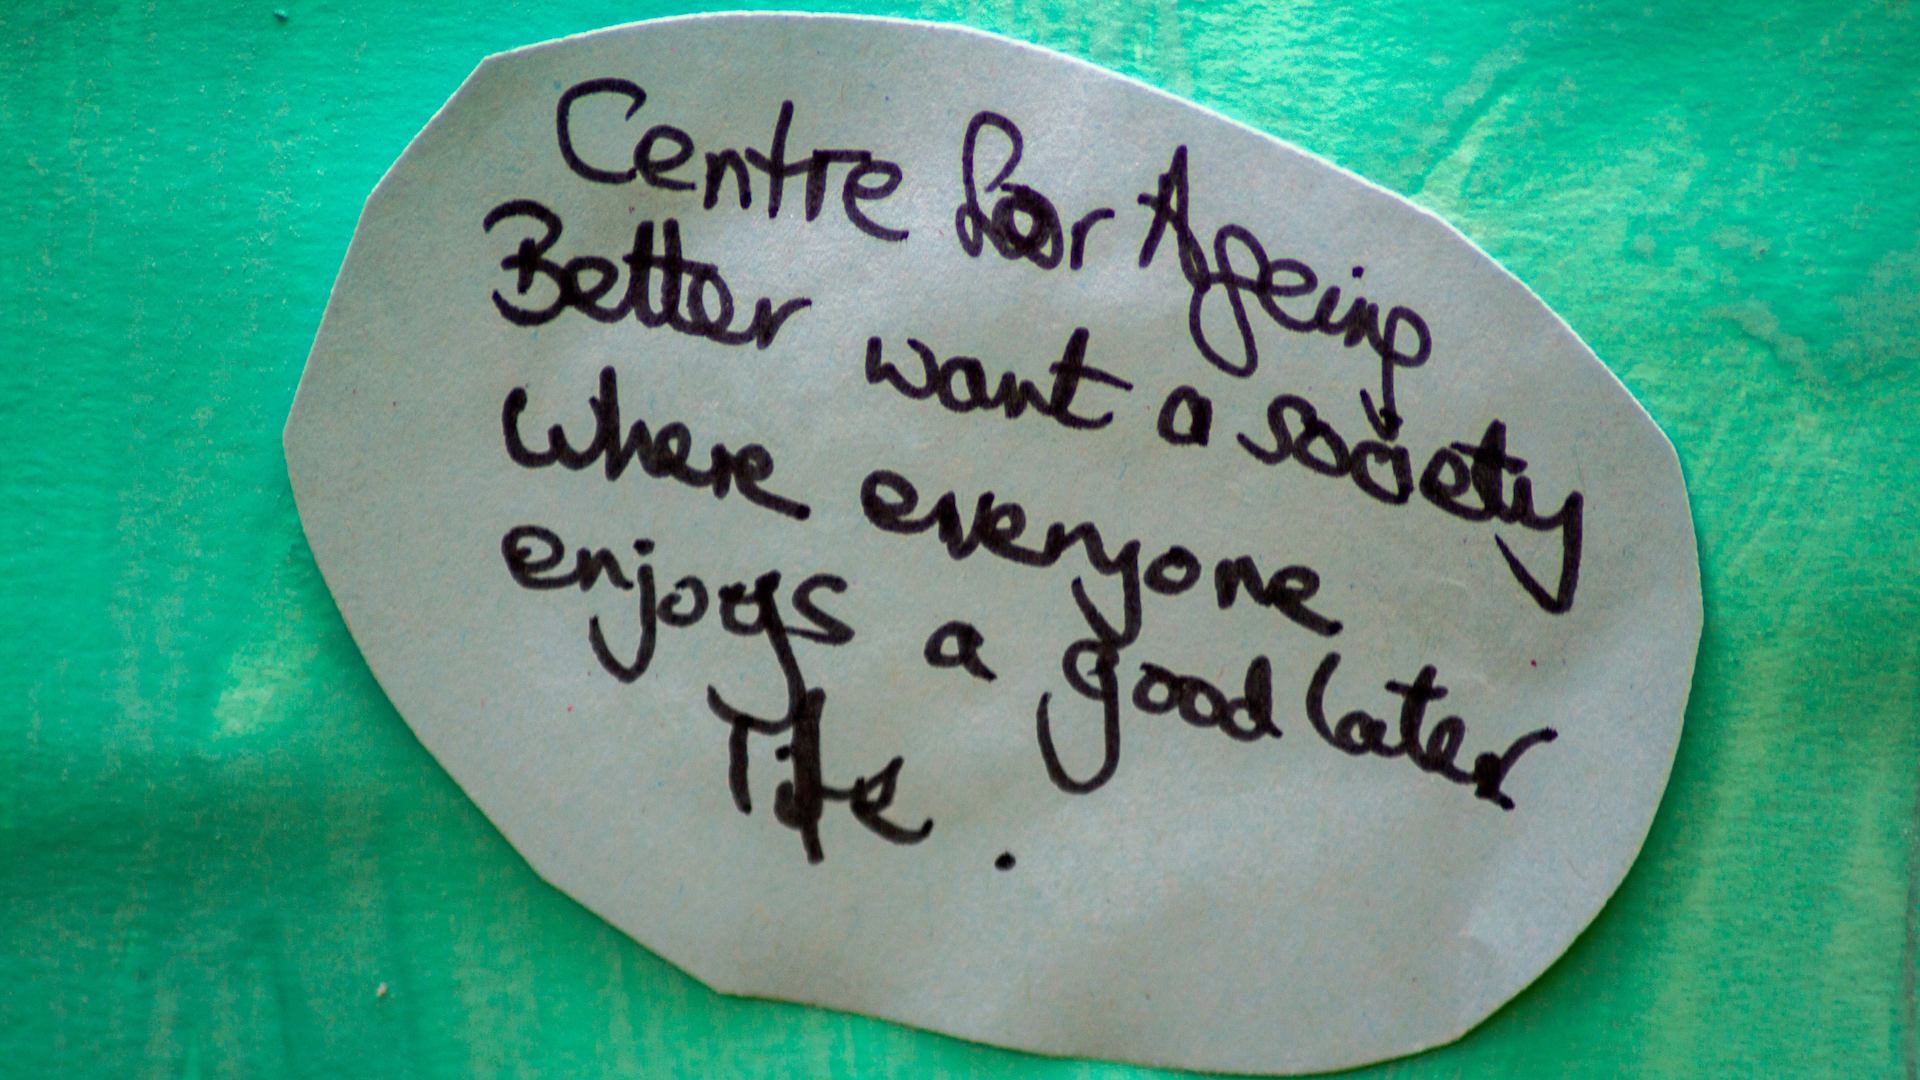 Centre for Ageing
Better want a society
Where everyone
enjoys a good later
life.